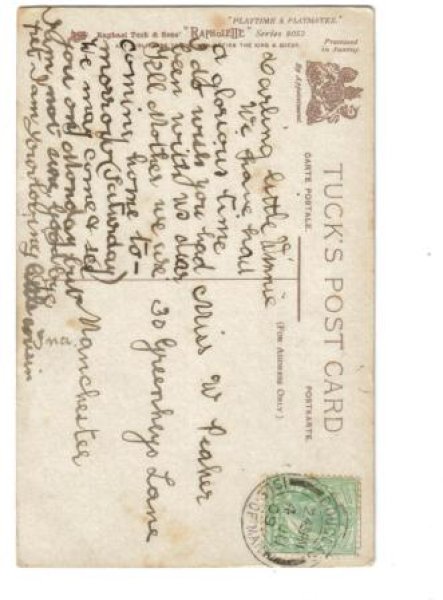 "PLAYTIME & PLAYMATES."
Raphael Tuck & Sons' "RAPHOLETTE" Series 8052
THE KING & QUEEN.
Processed
in Saxony.
By Appointment.
TUCK'S POST CARD
CARTE POSTALE.
POSTKARTE.
(FOR ADDRESS ONLY)
Darling little Winnie
We have had
a glorious time
I do wish you had
been with us dear
Tell Mother we are
coming home to-
morrow (Saturday)
We may come & see
you on Monday but
not sure goodbye
pet I am your loving little cousin
Ina.
Miss W
30 Greenheys Lane
Manchester
ISLE-OF-MAN
09